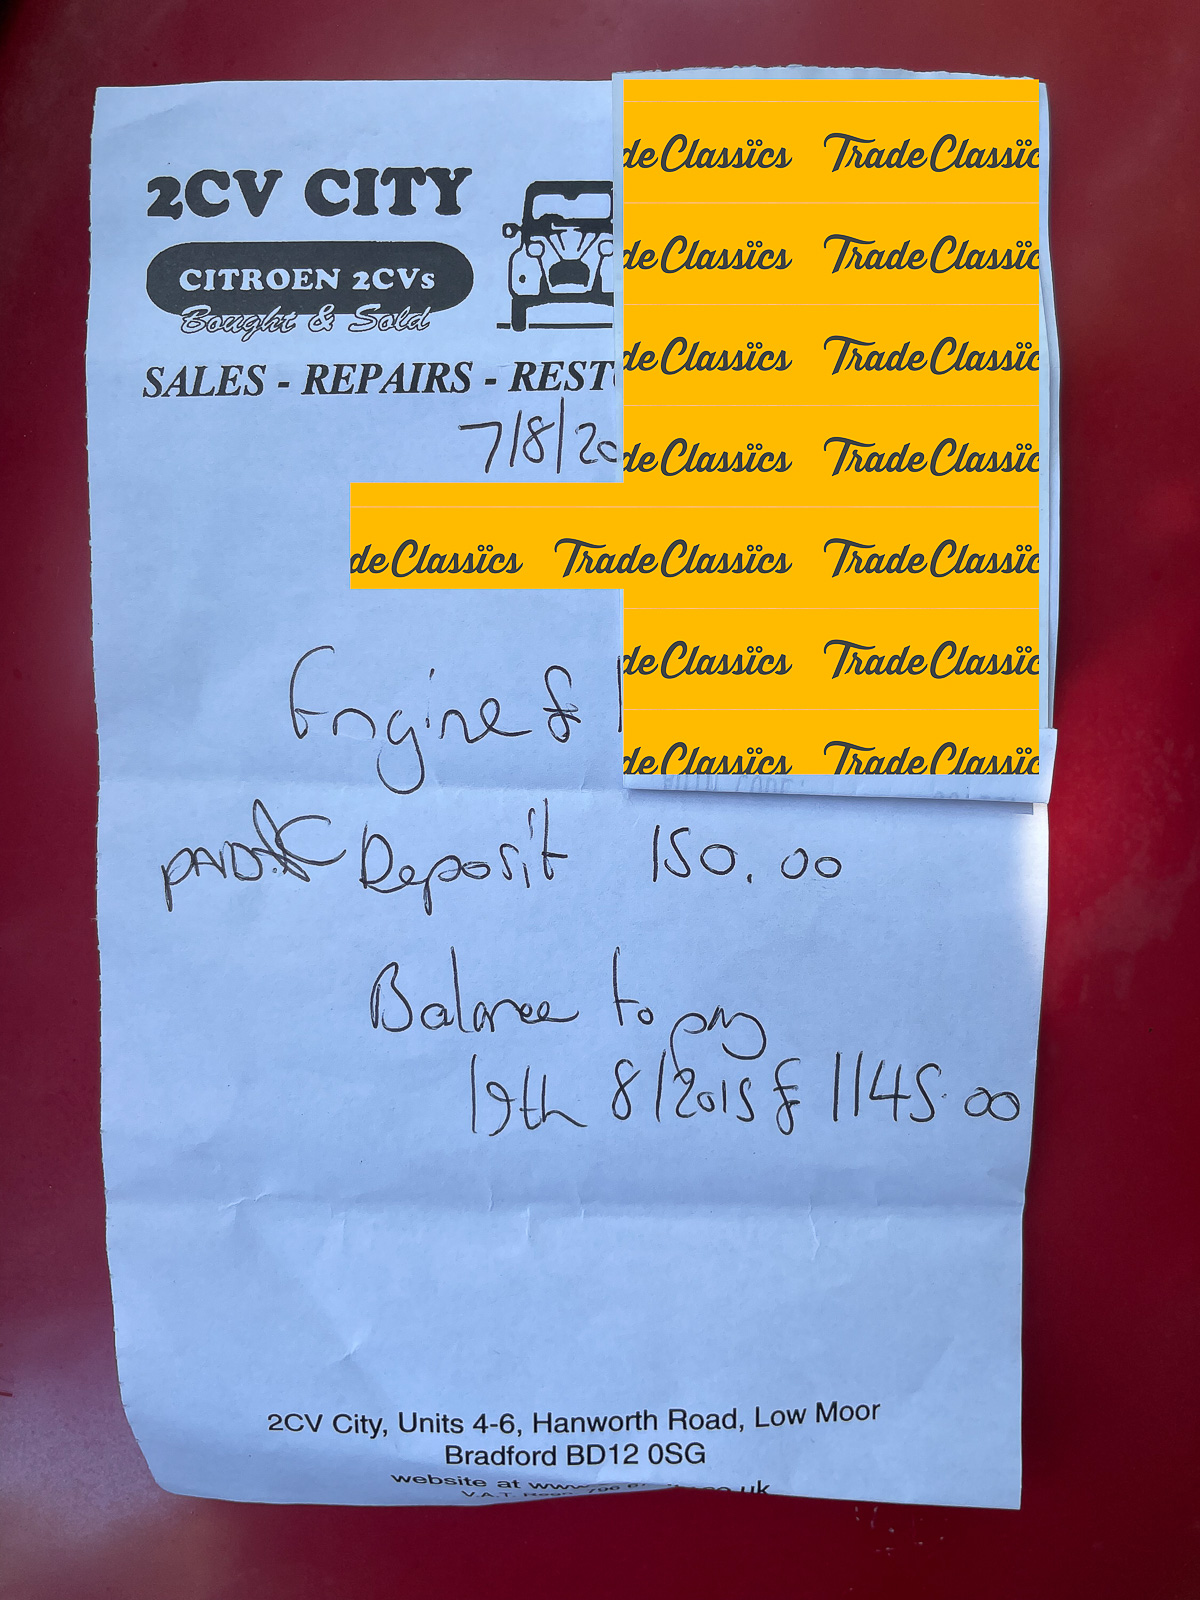 2CV CITY
CITROEN 2CVs
Bought & Sold
SALES - REPAIRS - REST
7/8/20
de Classïcs Trade Classïc
de Classïcs Trade Classïc
de Classïcs Trade Classïc
de Classïcs Trade Classïc
de Classïcs Trade Classïcs Trade Classïc
de Classïcs Trade Classïc
de Classïcs Trade Classïc
Engine £
Deposit 150.00
Balance to pay
19th 8/2015 £ 1145.00
2CV City, Units 4-6, Hanworth Road, Low Moor
Bradford BD12 0SG
website at www
.uk
V.A.T.